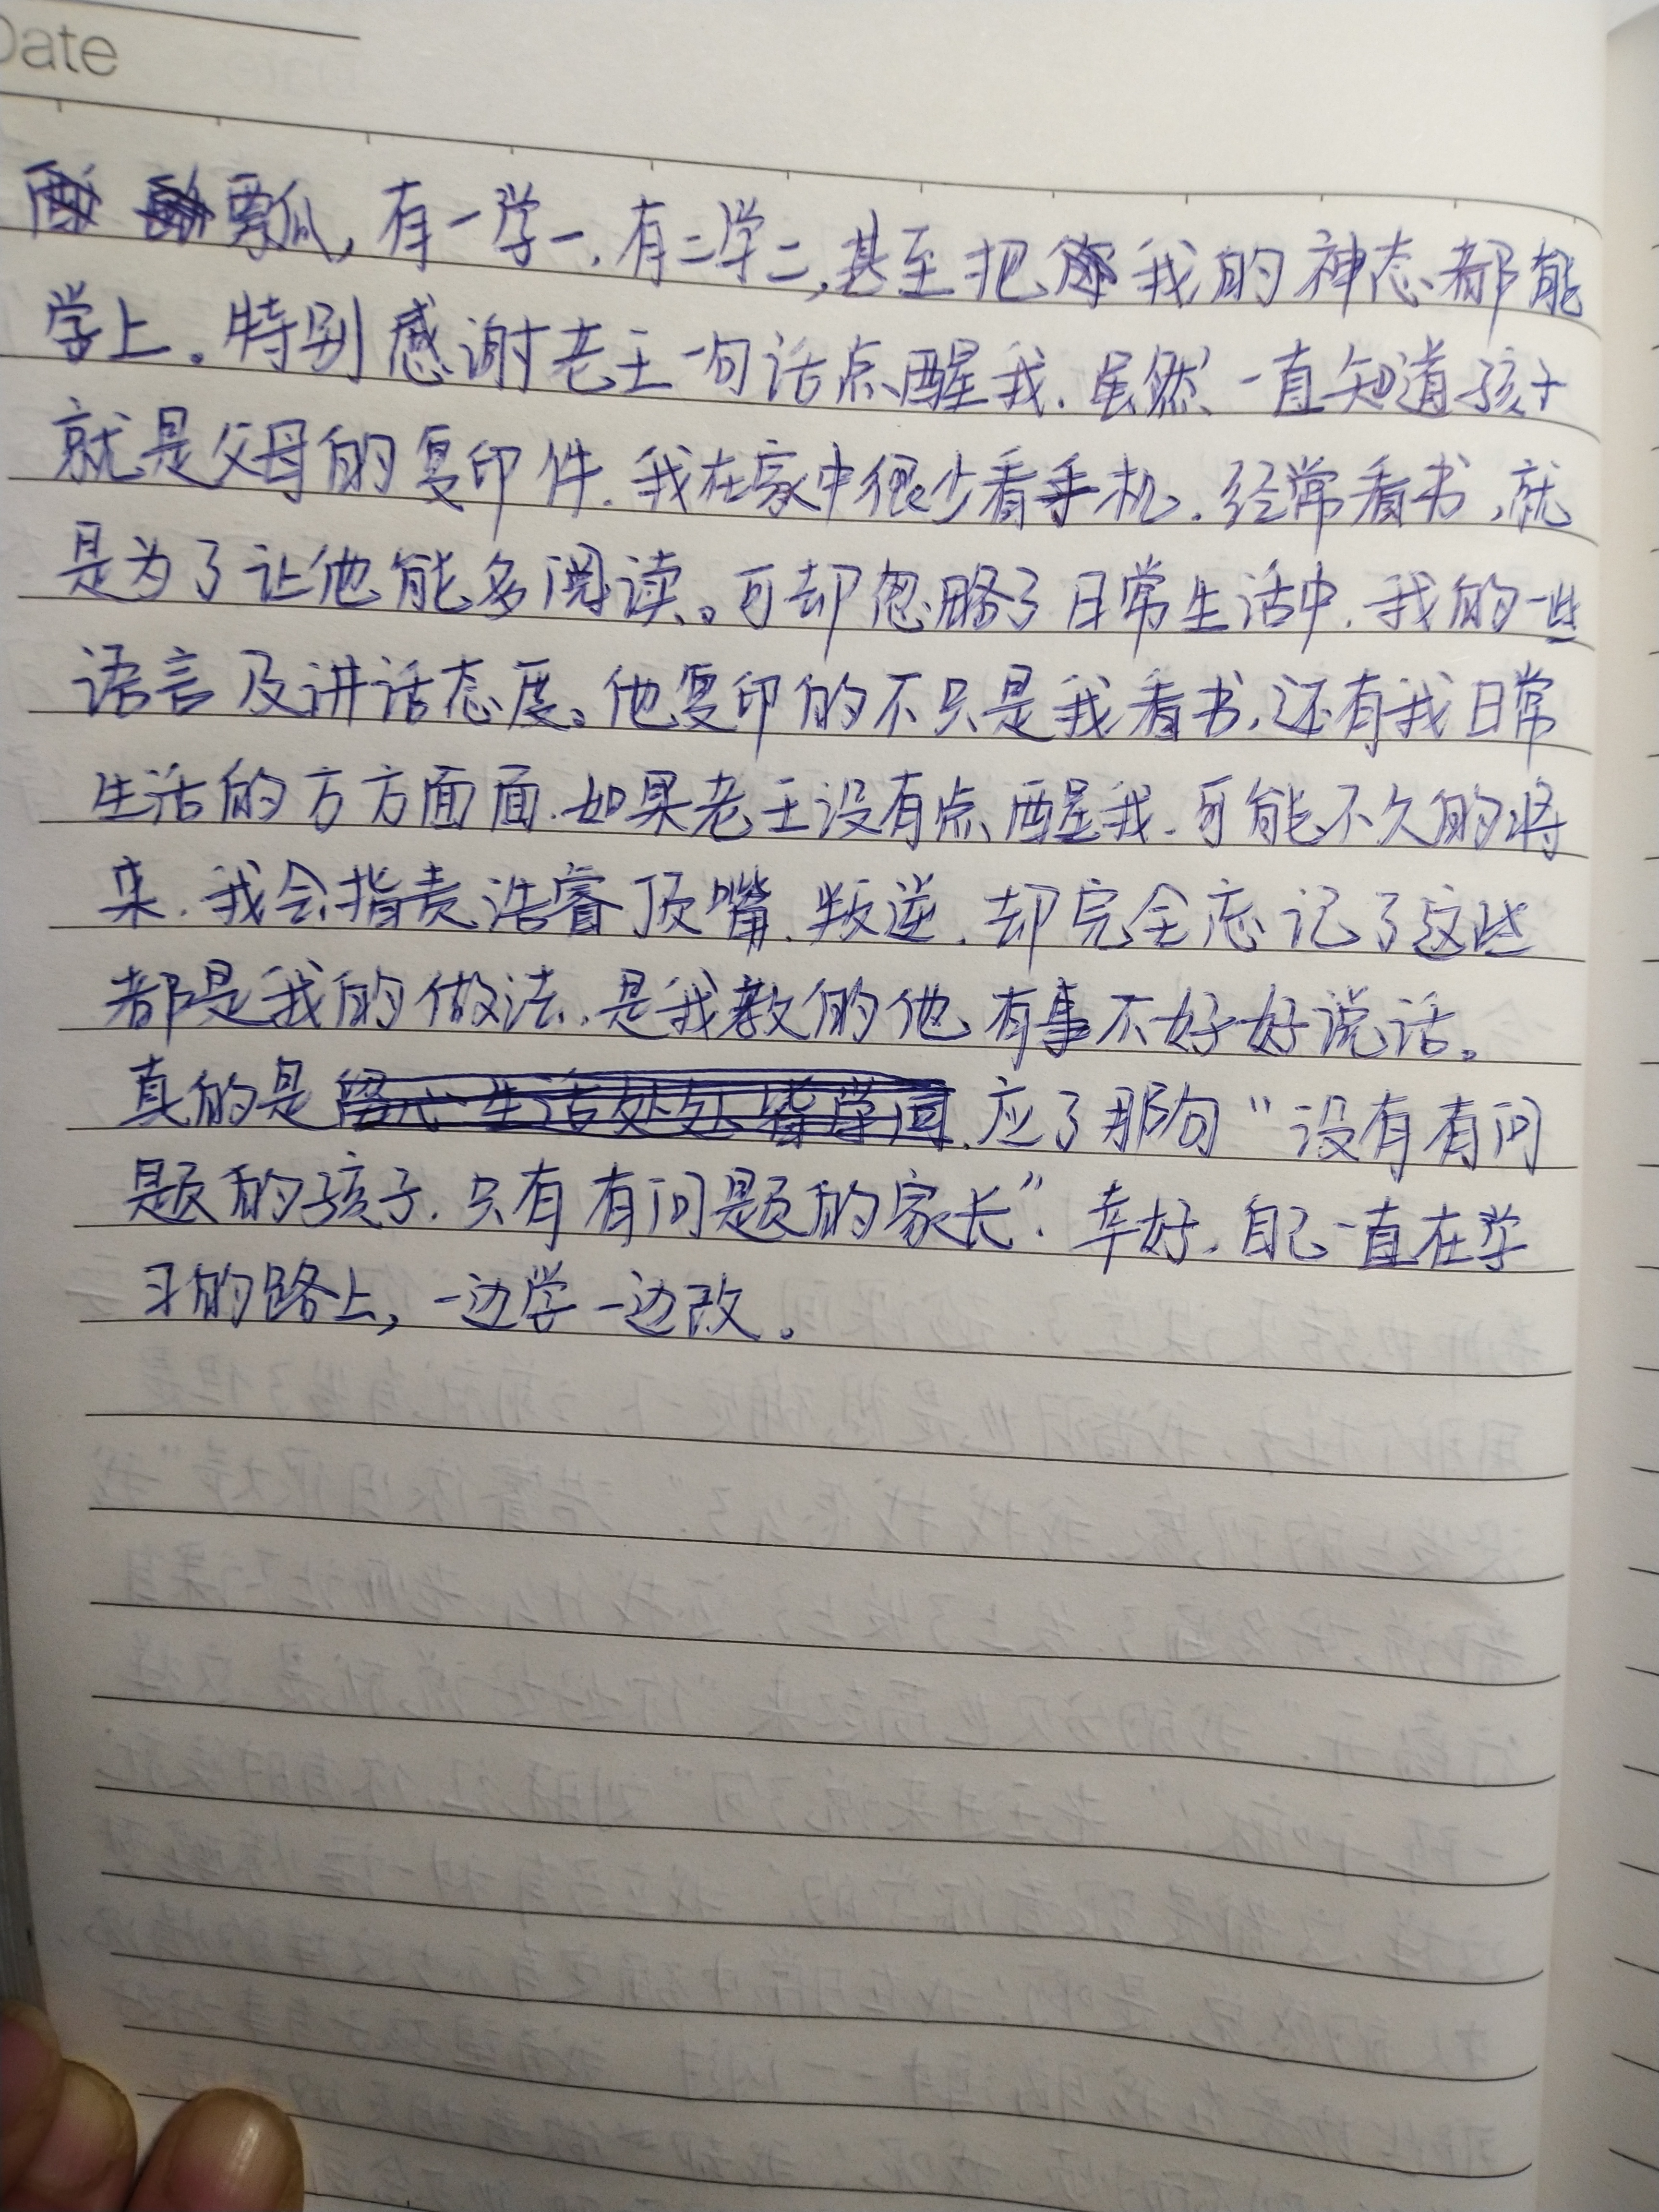 Date
瓢瓜，有一学一，有二学二，甚至把我的神态都能
学上。特别感谢老王一句话点醒我，虽然一直知道孩子
就是父母的复印件，我在家中很少看手机，经常看书，就
是为了让他能多阅读。可却忽略了日常生活中，我的一些
语言及讲话态度。他复印的不只是我看书，还有我日常
生活的方方面面，如果老王没有点醒我，可能不久的将
来，我会指责浩睿顶嘴、叛逆，却完全忘记了这些
都是我的做法，是我教的他有事不好好说话。
真的是留心生活处处皆学问，应了那句“没有有问
题的孩子，只有有问题的家长”。幸好，自己一直在学
习的路上，一边学一边改。